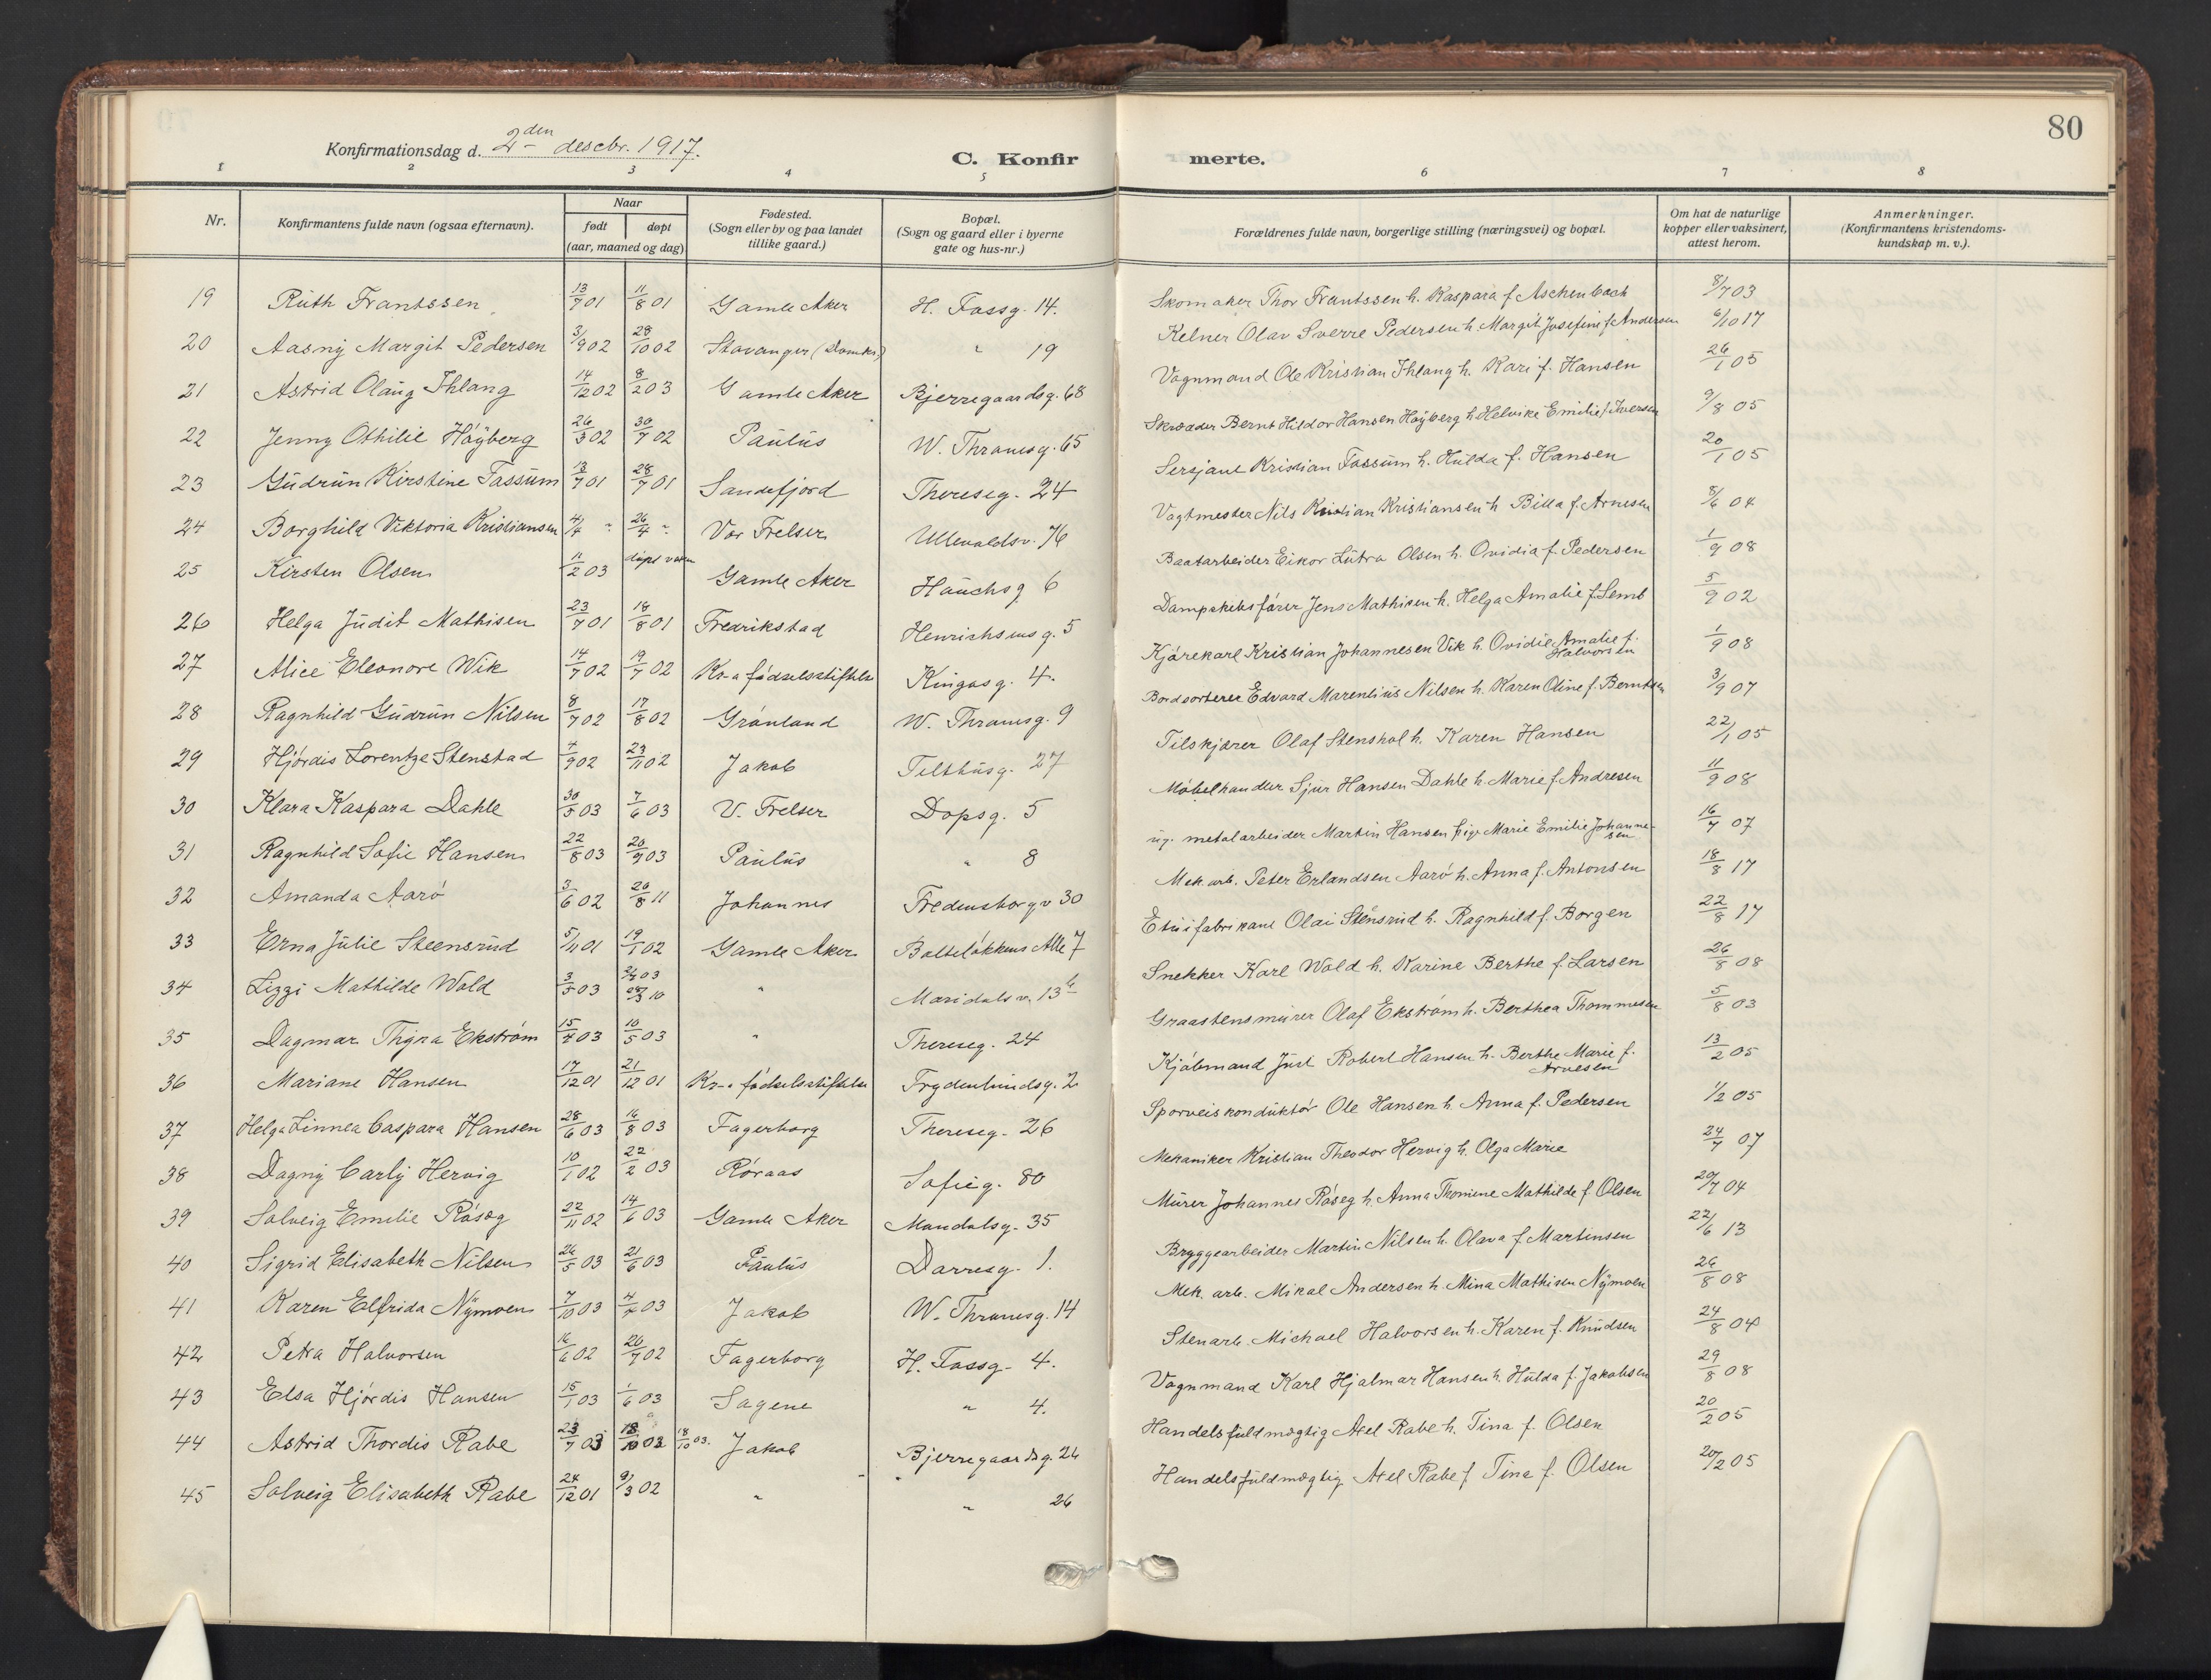 80
Konfirmationsdag d. 2den desebr. 1917.
C. Konfirmerte.
1 2 3 4 5 6 7 8
Nr. | Konfirmantens fulde navn (ogsaa efternavn). | Naar født døpt (aar, maaned og dag) | Fødested. (Sogn eller by og paa landet tillike gaard.) | Bopæl. (Sogn og gaard eller i byerne gate og hus-nr.) | Forældrenes fulde navn, borgerlige stilling (næringsvei) og bopæl. | Om hat de naturlige kopper eller vaksinert, attest herom. | Anmerkninger. (Konfirmantens kristendoms-kundskap m. v.).
19 Ruth Frantssen 13/7 01 11/8 01 Gamle Aker H. Fossg. 14. Skomaker Thor Frantssen h. Kaspara f. Aschenbach 8/7 03
20 Aasny Margit Pedersen 3/9 02 28/10 02 Stavanger (Domks.) " 19 Kelner Olav Sverre Pedersen h. Margit Josefine f. Andersen 6/10 17
21 Astrid Olaug Ihlang 14/12 02 8/2 03 Gamle Aker Bjerregaardsg. 68 Vognmand Ole Kristian Ihlang h. Kari f. Hansen 26/1 05
22 Jenny Othilie Høyberg 26/3 02 30/7 02 Paulus W. Thranesg. 65 Skræder Bernt Hildor Hansen Høyberg h. Helvike Emilie f. Iversen 9/8 05
23 Gudrun Kirstine Fossum 13/7 01 28/7 01 Sandefjord Thereseg. 24 Sersjant Kristian Fossum h. Hulda f. Hansen 20/1 05
24 Borghild Viktoria Kristiansen 4/4 " 26/4 " Vor Frelser Ullevoldsv. 76 Vagtmester Nils Kristian Kristiansen h. Billa f. Arnesen 8/6 04
25 Kirsten Olsen 11/2 03 døpt voksn Gamle Aker Hauchsg 6 Baatarbeider Eikor Lutra Olsen h. Ovidia f. Pedersen 1/9 08
26 Helga Judit Mathisen 23/7 01 18/8 01 Fredrikstad Henrichsensg. 5 Dampskibsfører Jens Mathisen h. Helga Amalie f. Lemb 5/9 02
27 Alice Eleonore Wik 14/7 02 19/7 02 Kr-a fødselsstiftelse Kingosg. 4. Kjørekarl Kristian Johannesen Vik h. Ovidie Amalie f. Halvorsen 1/9 08
28 Ragnhild Gudrun Nilsen 8/7 02 17/8 02 Grønland W. Thranesg. 9 Bordsorterer Edvard Marentius Nilsen h. Karen Oline f. Berntsen 3/9 07
29 Hjørdis Lorentze Stenstad 4/9 02 23/11 02 Jakob Telthusg. 27 Tilskjærer Olaf Stenshol h. Karen Hansen 22/1 05
30 Klara Kaspara Dahle 30/5 03 7/6 03 V. Frelser Dopsg. 5 Møbelhandler Sjur Hansen Dahle h. Marie f. Andresen 11/9 08
31 Ragnhild Sofie Hansen 22/8 03 20/9 03 Paulus " 8 ug. metalarbeider Martin Hansen pige Marie Emilie Johannesen 16/7 07
32 Amanda Aarø 3/6 02 20/8 11 Johannes Fredensborgv 30 Mek. arb. Peter Erlandsen Aarø h. Anna f. Antonsen 18/8 17
33 Erna Julie Steensrud 5/11 01 19/1 02 Gamle Aker Bolteløkkens Alle 7 Etuifabrikant Olai Stensrud h. Ragnhild f. Borgen 22/8 17
34 Lizzi Mathilde Wold 3/5 03 " Maridalsv. 13b Snekker Karl Wold h. Karine Berthe f. Larsen 26/8 08
35 Dagmar Thyra Ekstrøm 15/4 03 10/5 03 " Thereseg. 24 Graastensmurer Olaf Ekstrøm h. Berthea Thommesen 5/8 03
36 Mariane Hansen 17/12 01 21/12 01 Kr-a fødselsstiftelse Frydenlundsg. 2 Kjøbmand Just Robert Hansen h. Berthe Marie f. Arnesen 13/2 05
37 Helga Linnea Caspara Hansen 28/6 03 16/8 03 Fagerborg Thereseg. 26 Sporveiskonduktør Ole Hansen h. Anna f. Pedersen 1/2 05
38 Dagny Carly Hervig 10/1 02 22/2 03 Røraas Sofieg. 80 Mekaniker Kristian Theodor Hervig h. Olga Marie 24/7 07
39 Solveig Emilie Røsæg 22/11 02 14/6 03 Gamle Aker Mandalsg. 35 Murer Johannes Røseg h. Anna Thomine Mathilde f. Olsen 20/7 04
40 Sigrid Elisabeth Nilsen 26/5 03 21/6 03 Paulus Darresg. 1. Bryggearbeider Martin Nilsen h. Olava f. Martinsen 22/6 13
41 Karen Elfrida Nymoen 7/10 03 03 Jakob W. Thranesg. 14 Mek. arb. Mikal Andersen h. Mina Mathisen Nymoen 26/8 08
42 Petra Halvorsen 16/6 02 20/7 02 Fagerborg H. Fossg. 4. Stenarb. Michael Halvorsen h. Karen f. Knudsen 24/8 04
43 Elsa Hjørdis Hansen 15/1 03 1/6 03 Sagene " 4. Vognmand Karl Hjalmar Hansen h. Hulda f. Jakobsen 29/8 08
44 Astrid Thordis Rabe 23/7 03 18/10 03 18/10 03. Jakob Bjerregaardsg. 26 Handelsfuldmægtig Axel Rabe h. Tina f. Olsen 20/2 05
45 Solveig Elisabeth Rabe 24/12 01 9/3 02 " " 26 Handelsfuldmægtig Axel Rabe f Tina f. Olsen 20/2 05